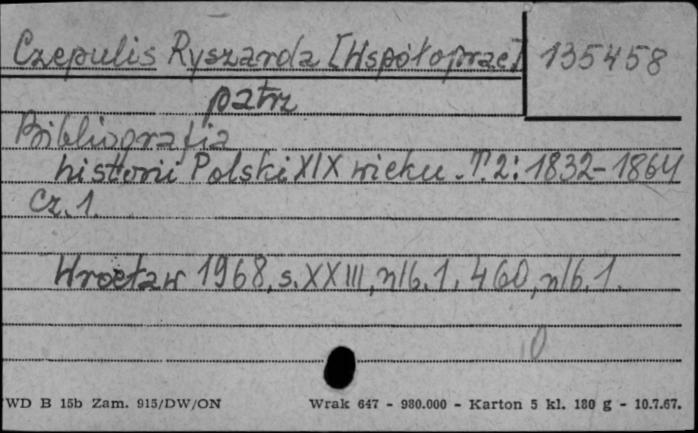 Czepulis Ryszarda [Współoprac] 135458
patrz
Bibliografia
historii Polski XIX wieku. T. 2: 1832-1864
Cz. 1.
Wrocław 1968, s. XXIII, nlb. 1, 460, nlb. 1.
WD B 15b Zam. 915/DW/ON Wrak 647 - 980.000 - Karton 5 kl. 180 g - 10.7.67.